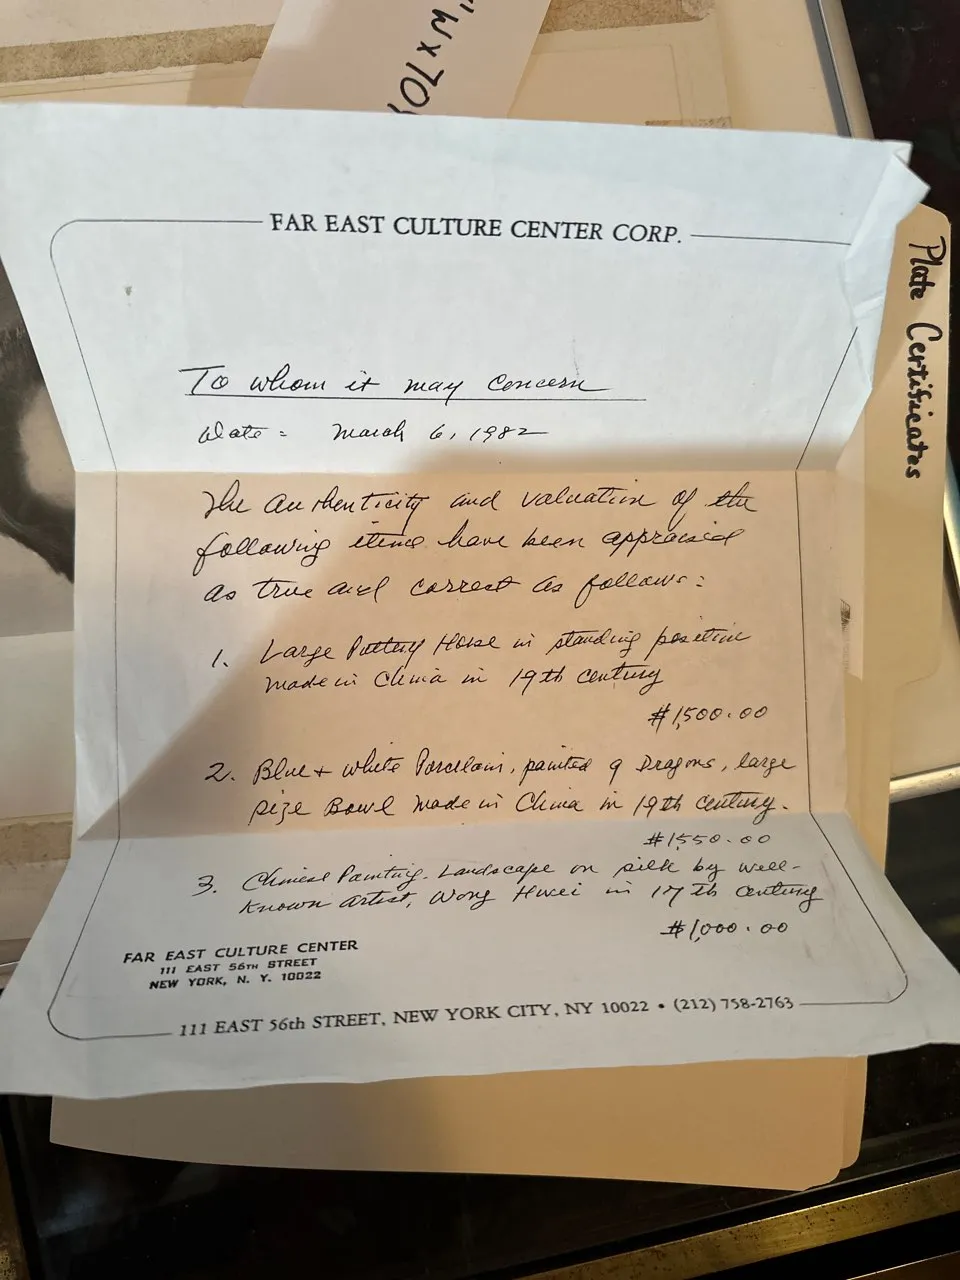 "W x 70
Plate Certificates
FAR EAST CULTURE CENTER CORP.
To whom it may concern
Date: March 6, 1982
The authenticity and valuation of the
following items have been appraised
as true and correct as follows:
1. Large Pottery Horse in standing position
made in China in 19th century
$1,500.00
2. Blue + white Porcelain, painted 9 Dragons, large
size Bowl made in China in 19th century.
$1550.00
3. Chinese Painting. Landscape on silk by well-
known artist, Wong Hwei in 17th century
$1,000.00
FAR EAST CULTURE CENTER
111 EAST 56TH STREET
NEW YORK, N. Y. 10022
111 EAST 56th STREET, NEW YORK CITY, NY 10022 • (212) 758-2763